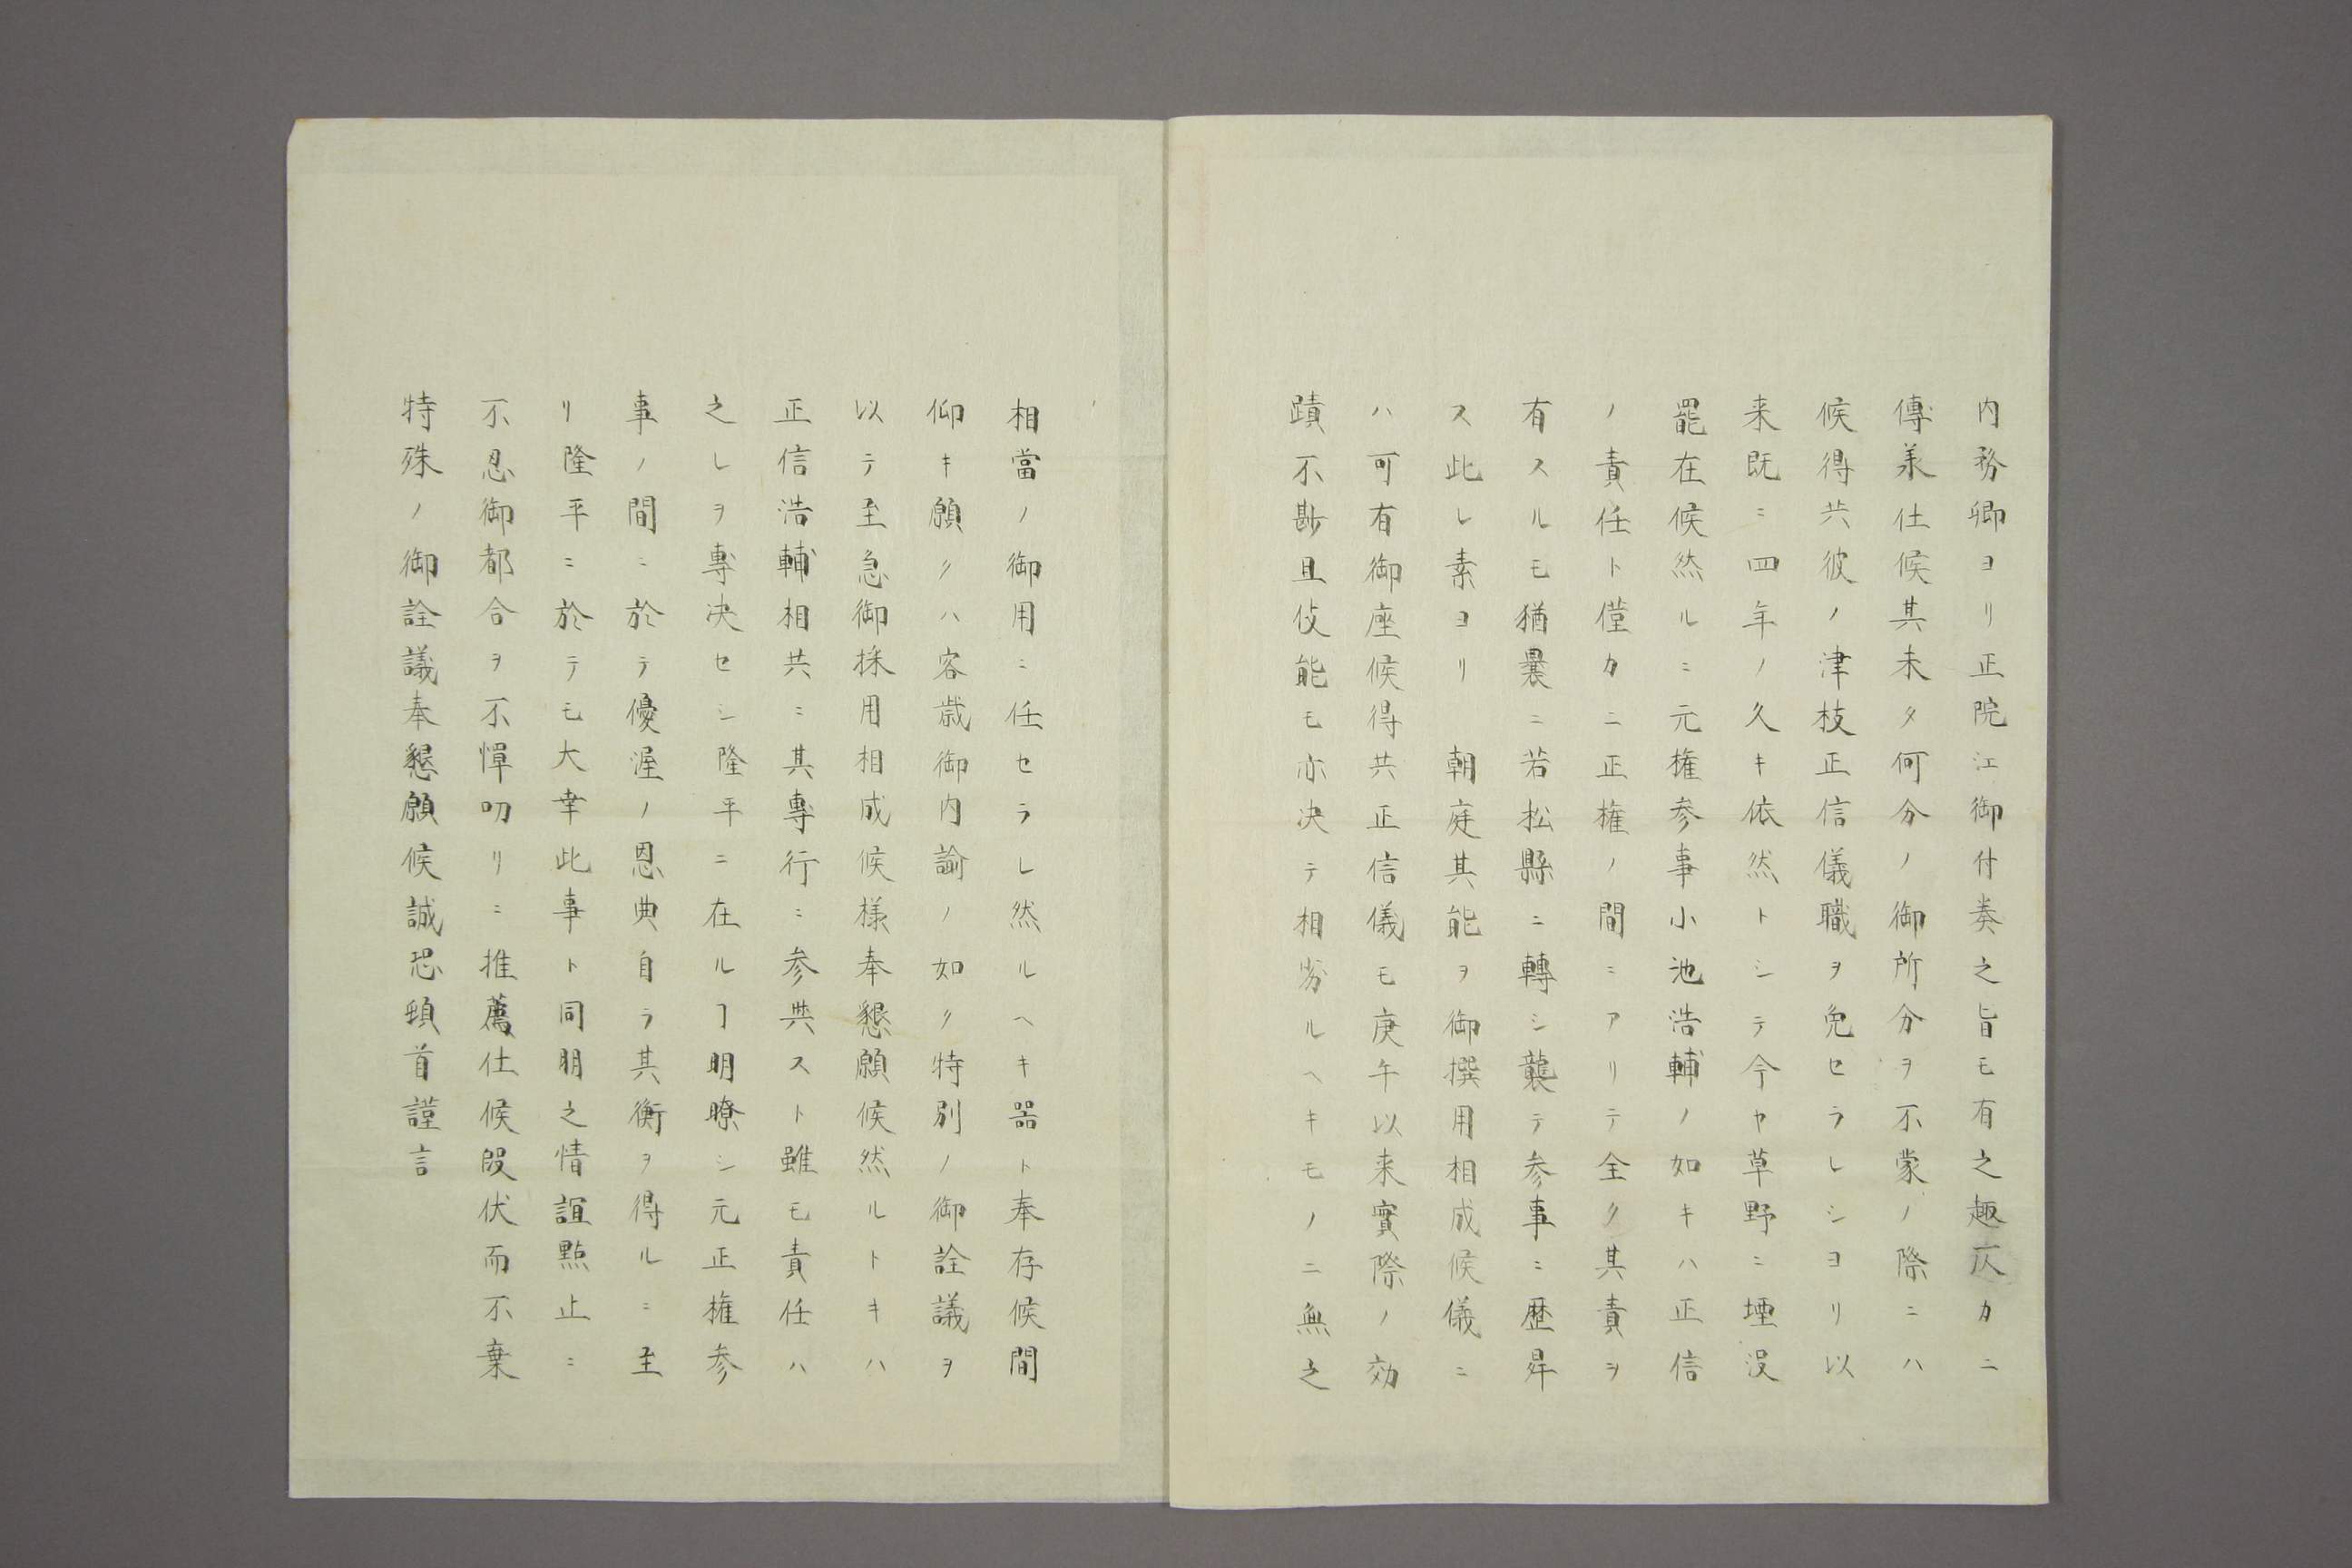 内務卿ヨリ正院江御付奏之旨モ有之趣仄カニ
傳承仕候其未タ何分ノ御所分ヲ不蒙ノ際ニハ
候得共彼ノ津枝正信儀職ヲ免セラレシヨリ以
来既ニ四年ノ久キ依然トシテ今ヤ草野ニ堙没
罷在候然ルニ元権参事小池浩輔ノ如キハ正信
ノ責任ト僅カニ正権ノ間ニアリテ全ク其責ヲ
有スルモ猶曩ニ若松縣ニ轉シ襲テ参事ニ歴昇
ス此レ素ヨリ　朝庭其能ヲ御撰用相成候儀ニ
ハ可有御座候得共正信儀モ庚午以来實際ノ効
蹟不尠且伎能モ亦決テ相劣ルヘキモノニ無之
相當ノ御用ニ任セラレ然ルヘキ器ト奉存候間
仰キ願クハ客歳御内諭ノ如ク特別ノ御詮議ヲ
以テ至急御採用相成候様奉懇願候然ルトキハ
正信浩輔相共ニ其專行ニ参與スト雖モ責任ハ
之レヲ專決セシ隆平ニ在ルヿ明瞭シ元正権参
事ノ間ニ於テ優渥ノ恩典自ラ其衡ヲ得ルニ至
リ隆平ニ於テモ大幸此事ト同朋之情誼黙止ニ
不忍御都合ヲ不憚叨リニ推薦仕候段伏而不棄
特殊ノ御詮議奉懇願候誠恐頓首謹言